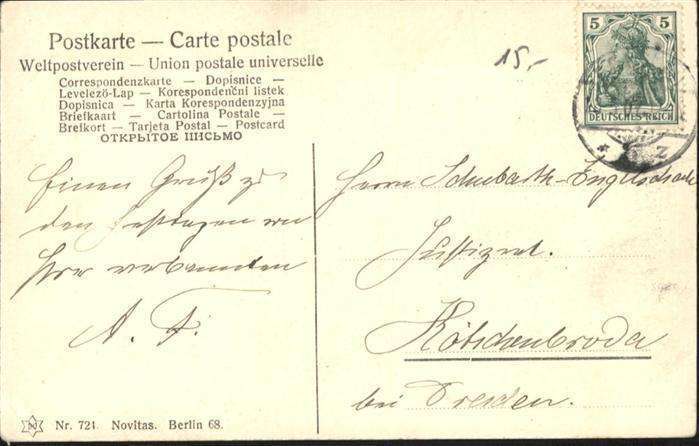 Postkarte — Carte postale
Weltpostverein — Union postale universelle
Correspondenzkarte — Dopisnice —
Levelezö-Lap — Korespondenčni listek
Dopisnica — Karta Korespondenzyjna
Briefkaart — Cartolina Postale —
Brefkort — Tarjeta Postal — Postcard
ОТКРЫТОЕ ПИСЬМО
15,-
5 5
DEUTSCHES REICH
Z
Einen Gruß zu
den Festtagen von
Ihre verbannten
A. F.
Herrn Schubarth-Engelschall
Justizrat.
Kötschenbroda
bei Dresden.
Nr. 724. Novitas. Berlin 68.